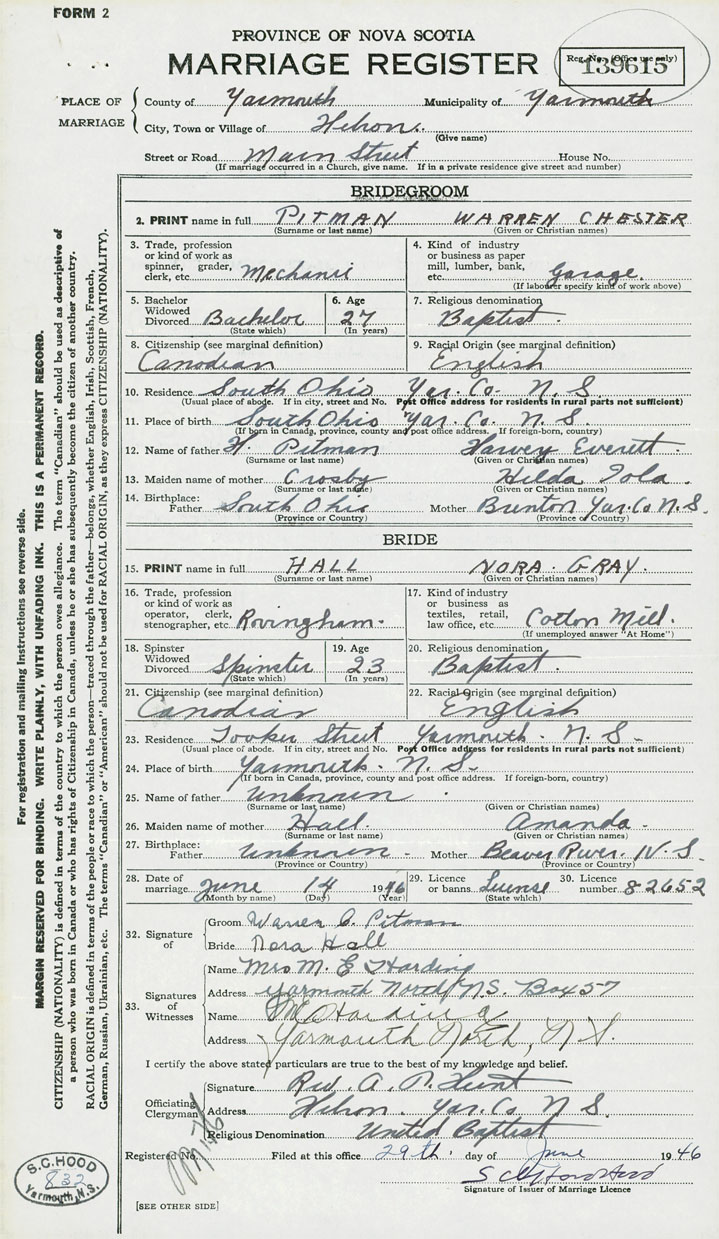 FORM 2
PROVINCE OF NOVA SCOTIA
MARRIAGE REGISTER
Reg. No. (Office use only)
139615
PLACE OF MARRIAGE
County of Yarmouth Municipality of Yarmouth
City, Town or Village of Hebron.
(Give name)
Street or Road Main Street House No.
(If marriage occurred in a Church, give name. If in a private residence give street and number)
BRIDEGROOM
2. PRINT name in full PITMAN WARREN CHESTER
(Surname or last name) (Given or Christian names)
3. Trade, profession or kind of work as spinner, grader, clerk, etc. Mechanic
4. Kind of industry or business as paper mill, lumber, bank, etc. Garage.
(If labourer specify kind of work above)
5. Bachelor Widowed Divorced Bachelor
(State which)
6. Age 27
(In years)
7. Religious denomination Baptist.
8. Citizenship (see marginal definition) Canadian
9. Racial Origin (see marginal definition) English
10. Residence South Ohio Yar. Co. N. S.
(Usual place of abode. If in city, street and No. Post Office address for residents in rural parts not sufficient)
11. Place of birth South Ohio Yar. Co. N. S
(If born in Canada, province, county and post office address. If foreign-born, country)
12. Name of father H. Pitman Harvey Everett.
(Surname or last name) (Given or Christian names)
13. Maiden name of mother Crosby Hilda Iola.
(Surname or last name) (Given or Christian names)
14. Birthplace: Father South Ohio Mother Brenton Yar. Co N. S.
(Province or Country) (Province or Country)
BRIDE
15. PRINT name in full HALL NORA GRAY.
(Surname or last name) (Given or Christian names)
16. Trade, profession or kind of work as operator, clerk, stenographer, etc.
17. Kind of industry or business as textiles, retail, law office, etc. Cotton Mill.
(If unemployed answer "At Home")
18. Spinster Widowed Divorced Spinster
(State which)
19. Age 23
(In years)
20. Religious denomination Baptist.
21. Citizenship (see marginal definition) Canadian
22. Racial Origin (see marginal definition) English
23. Residence Tooker Street Yarmouth. N. S.
(Usual place of abode. If in city, street and No. Post Office address for residents in rural parts not sufficient)
24. Place of birth Yarmouth. N. S.
(If born in Canada, province, county and post office address. If foreign-born, country)
25. Name of father Unknown.
(Surname or last name) (Given or Christian names)
26. Maiden name of mother Hall. Amanda.
(Surname or last name) (Given or Christian names)
27. Birthplace: Father Unknown. Mother Beaver River. N. S.
(Province or Country) (Province or Country)
28. Date of marriage June 14 1946
(Month by name) (Day) (Year)
29. Licence or banns License
(State which)
30. Licence number 82652
32. Signature of
Groom Warren C. Pitman
Bride Nora Hall
33. Signatures of Witnesses
Name Mrs M. E Harding
Address Yarmouth North N.S. Box 57
Name M E Harding
Address Yarmouth North, N.S.
I certify the above stated particulars are true to the best of my knowledge and belief.
Officiating Clergyman
Signature Rev. A. Hunt
Address Hebron. Yar. Co. N. S.
Religious Denomination United Baptist
Registered No. Filed at this office 29th. day of June 1946
Signature of Issuer of Marriage Licence
[SEE OTHER SIDE]
S.C. HOOD
832
Yarmouth, N.S.
For registration and mailing instructions see reverse side.
MARGIN RESERVED FOR BINDING. WRITE PLAINLY, WITH UNFADING INK. THIS IS A PERMANENT RECORD.
CITIZENSHIP (NATIONALITY) is defined in terms of the country to which the person owes allegiance. The term "Canadian" should be used as descriptive of
a person who was born in Canada or who has rights of Citizenship in Canada, unless he or she has subsequently become the citizen of another country.
RACIAL ORIGIN is defined in terms of the people or race to which the person—traced through the father—belongs, whether English, Irish, Scottish, French,
German, Russian, Ukrainian, etc. The terms "Canadian" or "American" should not be used for RACIAL ORIGIN, as they express CITIZENSHIP (NATIONALITY).